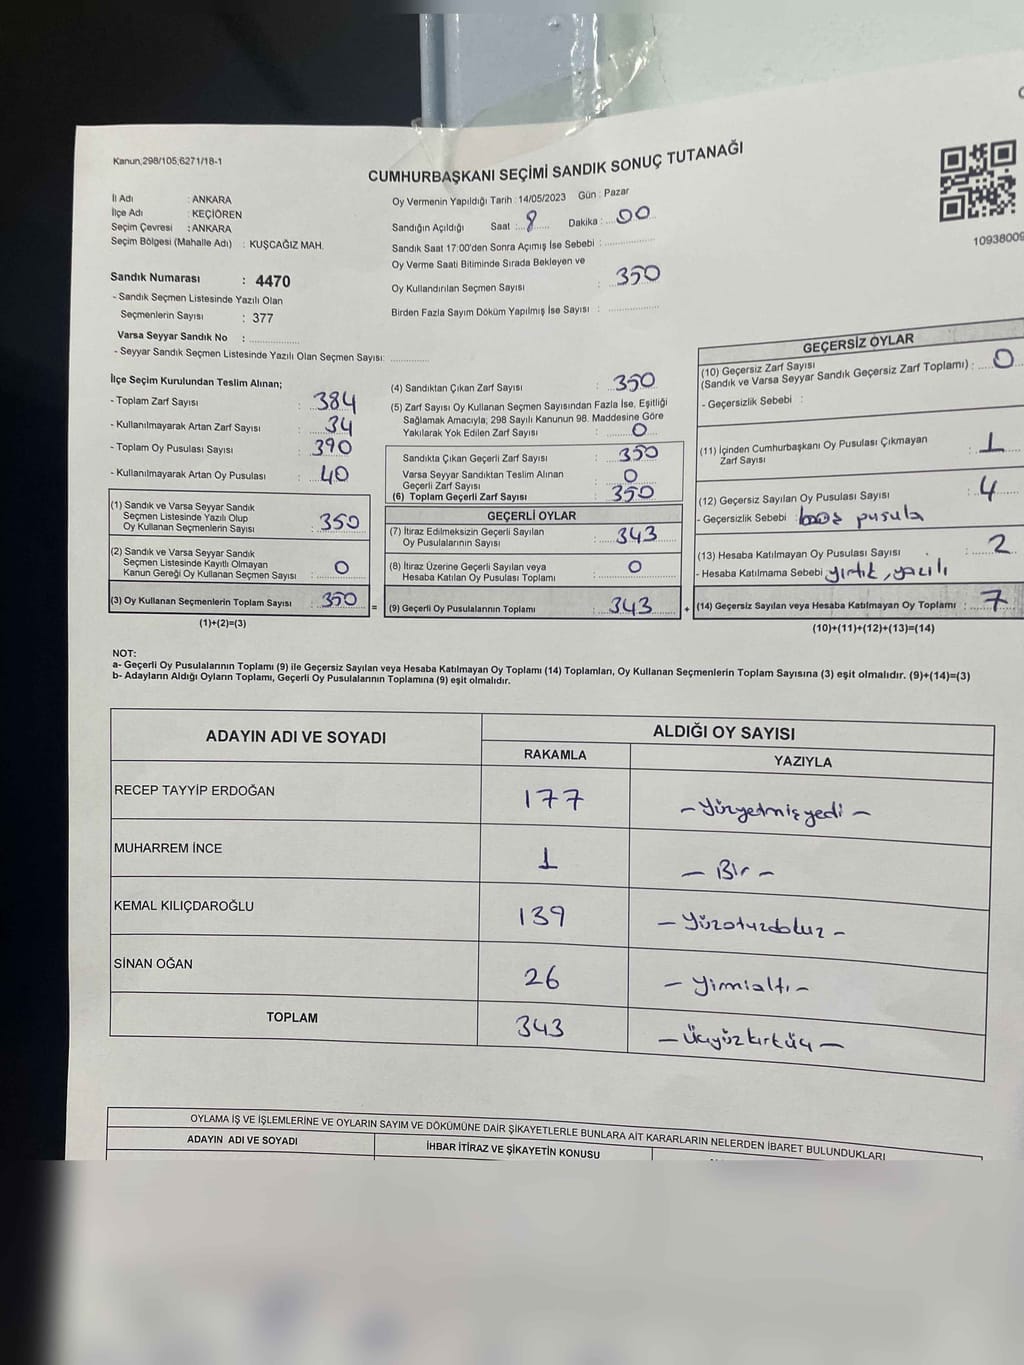 Kanun;298/105;6271/18-1
CUMHURBAŞKANI SEÇİMİ SANDIK SONUÇ TUTANAĞI
İl Adı : ANKARA
İlçe Adı : KEÇİÖREN
Seçim Çevresi : ANKARA
Seçim Bölgesi (Mahalle Adı) : KUŞCAĞIZ MAH.
Oy Vermenin Yapıldığı Tarih : 14/05/2023 Gün : Pazar
Sandığın Açıldığı Saat : 8 Dakika : 00
Sandık Saat 17:00'den Sonra Açımış İse Sebebi :
Oy Verme Saati Bitiminde Sırada Bekleyen ve
Oy Kullandırılan Seçmen Sayısı : 350
Birden Fazla Sayım Döküm Yapılmış İse Sayısı :
10938009
Sandık Numarası : 4470
- Sandık Seçmen Listesinde Yazılı Olan
Seçmenlerin Sayısı : 377
Varsa Seyyar Sandık No :
- Seyyar Sandık Seçmen Listesinde Yazılı Olan Seçmen Sayısı:
İlçe Seçim Kurulundan Teslim Alınan;
- Toplam Zarf Sayısı : 384
- Kullanılmayarak Artan Zarf Sayısı : 34
- Toplam Oy Pusulası Sayısı : 390
- Kullanılmayarak Artan Oy Pusulası : 40
(1) Sandık ve Varsa Seyyar Sandık
Seçmen Listesinde Yazılı Olup
Oy Kullanan Seçmenlerin Sayısı : 350
(2) Sandık ve Varsa Seyyar Sandık
Seçmen Listesinde Kayıtlı Olmayan
Kanun Gereği Oy Kullanan Seçmen Sayısı : 0
(3) Oy Kullanan Seçmenlerin Toplam Sayısı : 350 =
(1)+(2)=(3)
(4) Sandıktan Çıkan Zarf Sayısı : 350
(5) Zarf Sayısı Oy Kullanan Seçmen Sayısından Fazla İse, Eşitliği
Sağlamak Amacıyla; 298 Sayılı Kanunun 98. Maddesine Göre
Yakılarak Yok Edilen Zarf Sayısı : 0
Sandıkta Çıkan Geçerli Zarf Sayısı : 350
Varsa Seyyar Sandıktan Teslim Alınan
Geçerli Zarf Sayısı : 0
(6) Toplam Geçerli Zarf Sayısı : 350
GEÇERLİ OYLAR
(7) İtiraz Edilmeksizin Geçerli Sayılan
Oy Pusulalarının Sayısı : 343
(8) İtiraz Üzerine Geçerli Sayılan veya
Hesaba Katılan Oy Pusulası Toplamı : 0
(9) Geçerli Oy Pusulalarının Toplamı : 343 +
GEÇERSİZ OYLAR
(10) Geçersiz Zarf Sayısı
(Sandık ve Varsa Seyyar Sandık Geçersiz Zarf Toplamı) : 0
- Geçersizlik Sebebi :
(11) İçinden Cumhurbaşkanı Oy Pusulası Çıkmayan
Zarf Sayısı : 1
(12) Geçersiz Sayılan Oy Pusulası Sayısı : 4
- Geçersizlik Sebebi : boş pusula
(13) Hesaba Katılmayan Oy Pusulası Sayısı : 2
- Hesaba Katılmama Sebebi : yırtık, yazılı
(14) Geçersiz Sayılan veya Hesaba Katılmayan Oy Toplamı : 7
(10)+(11)+(12)+(13)=(14)
NOT:
a- Geçerli Oy Pusulalarının Toplamı (9) ile Geçersiz Sayılan veya Hesaba Katılmayan Oy Toplamı (14) Toplamları, Oy Kullanan Seçmenlerin Toplam Sayısına (3) eşit olmalıdır. (9)+(14)=(3)
b- Adayların Aldığı Oyların Toplamı, Geçerli Oy Pusulalarının Toplamına (9) eşit olmalıdır.
ADAYIN ADI VE SOYADI
ALDIĞI OY SAYISI
RAKAMLA YAZIYLA
RECEP TAYYİP ERDOĞAN 177 - Yüzyetmişyedi -
MUHARREM İNCE 1 - Bir -
KEMAL KILIÇDAROĞLU 139 - Yüzotuzdokuz -
SİNAN OĞAN 26 - Yirmialtı -
TOPLAM 343 - Üçyüzkırküç -
OYLAMA İŞ VE İŞLEMLERİNE VE OYLARIN SAYIM VE DÖKÜMÜNE DAİR ŞİKAYETLERLE BUNLARA AİT KARARLARIN NELERDEN İBARET BULUNDUKLARI
ADAYIN ADI VE SOYADI İHBAR İTİRAZ VE ŞİKAYETİN KONUSU